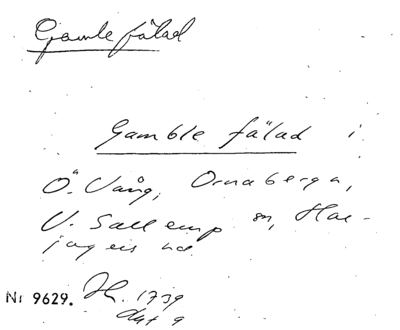 Gamle fälad
Gamble fälad i
Ö. Vång, Ornaberga,
V. Sallerup sn, Har-
jagers hd.
Nr 9629. Jh. 1739
akt 9